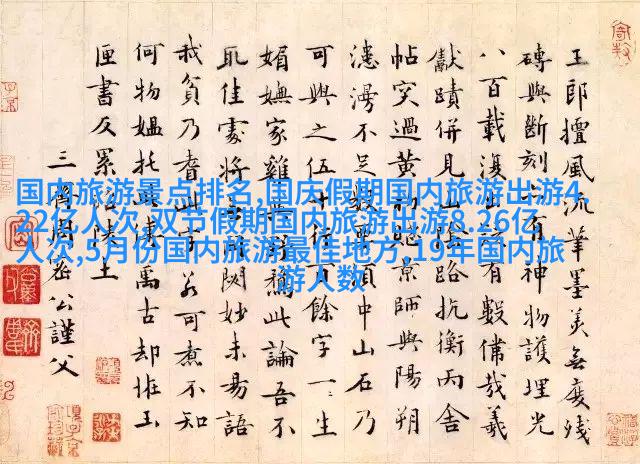 王郎擅風流筆墨美無度殘
磚與斷刻有神物護埋光
八百載復出有數儒哉羲
獻蹟併見山陰路抗衡兩舍
帖突過黄初京師與陽朔
漶漫不足數中山石乃
可與之伍餘字一一生
媚嫵家雞此論吾不
取佳處將妙未易語
我貧乃可煮不知
何物媪托此萬古却誰玉
匣書反累陵土
三 公謹父
国内旅游景点排名,国庆假期国内旅游出游4.
22亿人次,双节假期国内旅游出游8.26亿
人次,5月份国内旅游最佳地方,19年国内旅
游人数